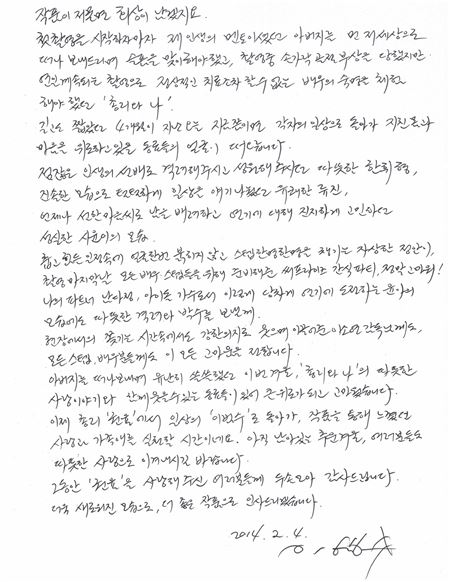 작품이 저물면 회상이 남겠지요.
첫촬영을 시작하자마자 제 인생의 멘토이셨던 아버지는 먼 저세상으로
떠나 보내드리며 슬픔을 맞이해야했고, 촬영중 손가락 골절 부상을 당했지만
연일계속되는 촬영으로 정상적인 치료조차 할 수 없는 배우의 숙명을 체험
해야 했던 '총리와 나'.
길고도 짧았던 4개월이 지나고 난 지금쯤이면 각자의 일상으로 돌아가 지친 몸과
마음을 위로하고 있을 동료들의 얼굴이 떠오릅니다.
인생의 선배로 격려해주시고 따뜻한 한희형,
모습으로 일상을 얘기나눴던 유쾌한 류진,
언제나 선한 마음씨로 남을 배려하고 연기에 대해 진지하게 고민하던
성실한 시윤이의 모습.
춥고 힘든 인정속에 스탭 한명한명을 챙기는 자상한 정안이,
촬영 마지막날 모든 배우, 스탭들을 위해 준비해준 써프라이즈 간식파티, 정말 고마워!
나의 파트너 남다정, 아이돌 가수로서 이렇게 당차게 연기에 도전하는 윤아의
모습에도 따뜻한 격려와 박수를 보냅니다.
현장에서의 쫓기는 시간속에서도 강한의지로 웃으며 이끌어준 이소연 감독님께도,
모든 스탭, 배우분들께도 이 모든 고마움을 전합니다.
아버지를 떠나보내며 유난히 쓸쓸했던 이번겨울, '총리와 나'의 따뜻한
사랑이야기와 함께 웃을 수 있는 동료들이 있어 큰 위로가 되고 고마웠습니다.
이제 총리 '권율'에서 일상의 '이범수'로 돌아가, 작품을 통해 느꼈던
사랑과 가족애를 실천할 시간이네요. 아직 남아있는 추운겨울, 여러분들도
따뜻한 사랑으로 이겨내시길 바랍니다.
그동안 '권율'을 사랑해 주신 여러분들께 두손모아 감사드립니다.
더욱 새로워진 모습으로, 더 좋은 작품으로 인사드리겠습니다.
2014. 2. 4.